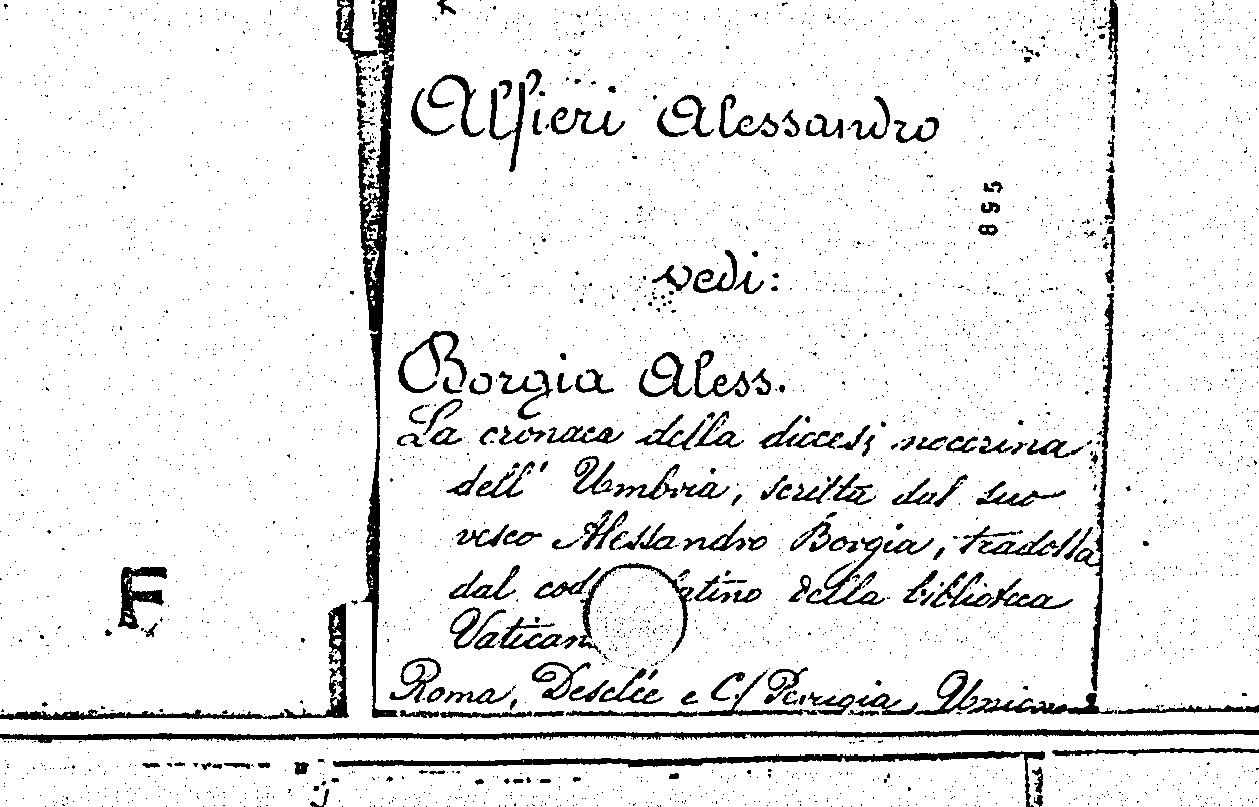 Alfieri Alessandro
895
vedi:
Borgia Aless.
La cronaca della diocesi nocerina
dell' Umbria, scritta dal suo
vesco Alessandro Borgia, tradotta
dal latino della biblioteca
Roma, Desclée e C./ Perugia,
E